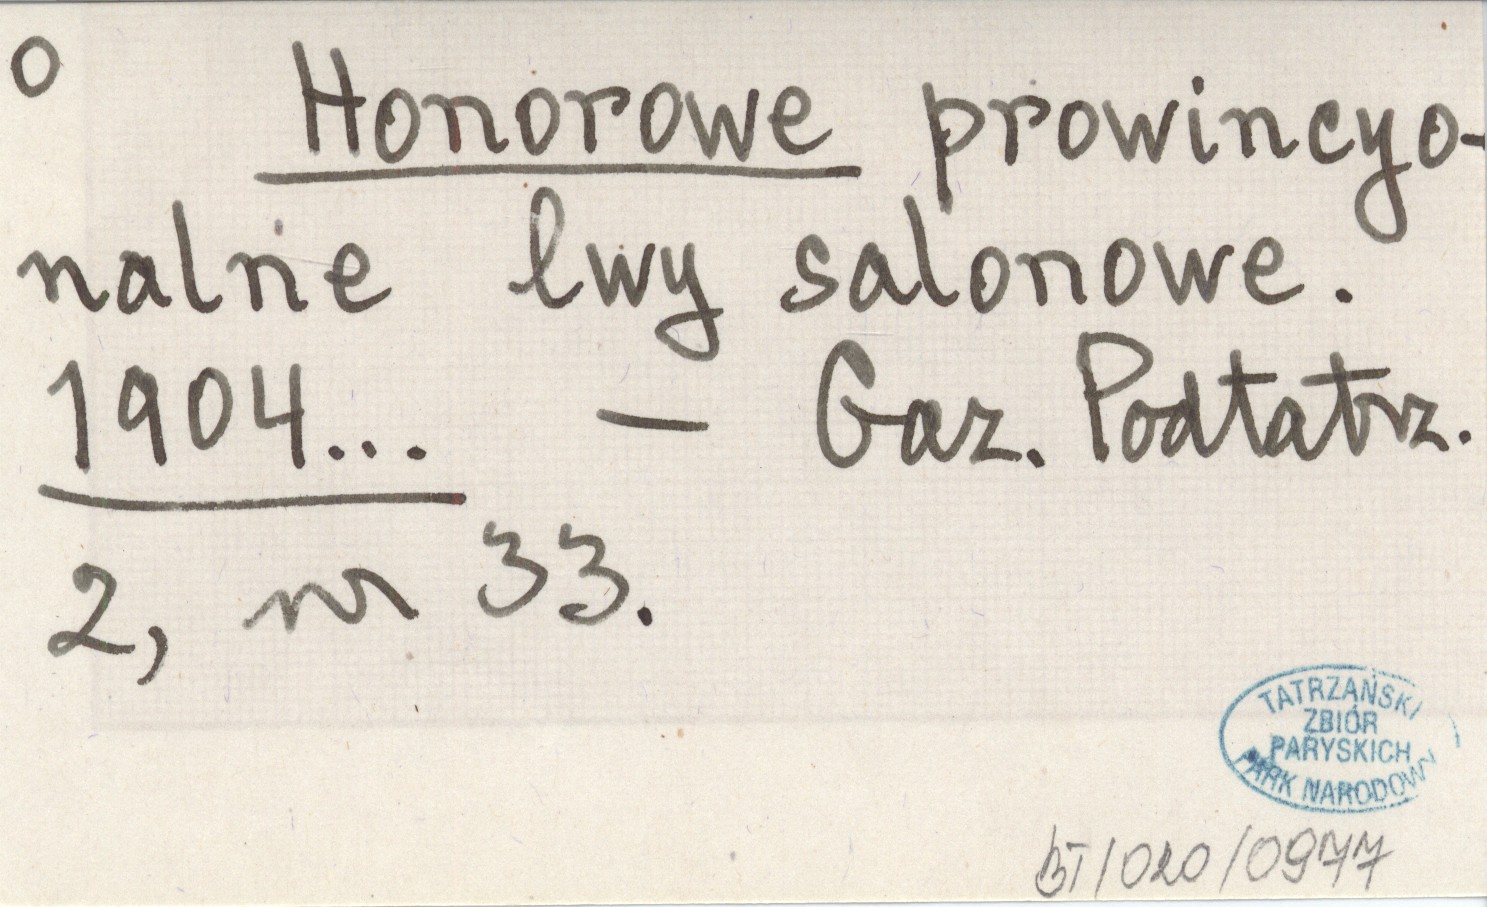 O Honorowe prowincyo-
nalne lwy salonowe.
1904... — Gaz. Podtatrz.
2, nr 33.
TATRZAŃSKI
ZBIÓR
PARYSKICH
PARK NARODOWY
BT/020/0977